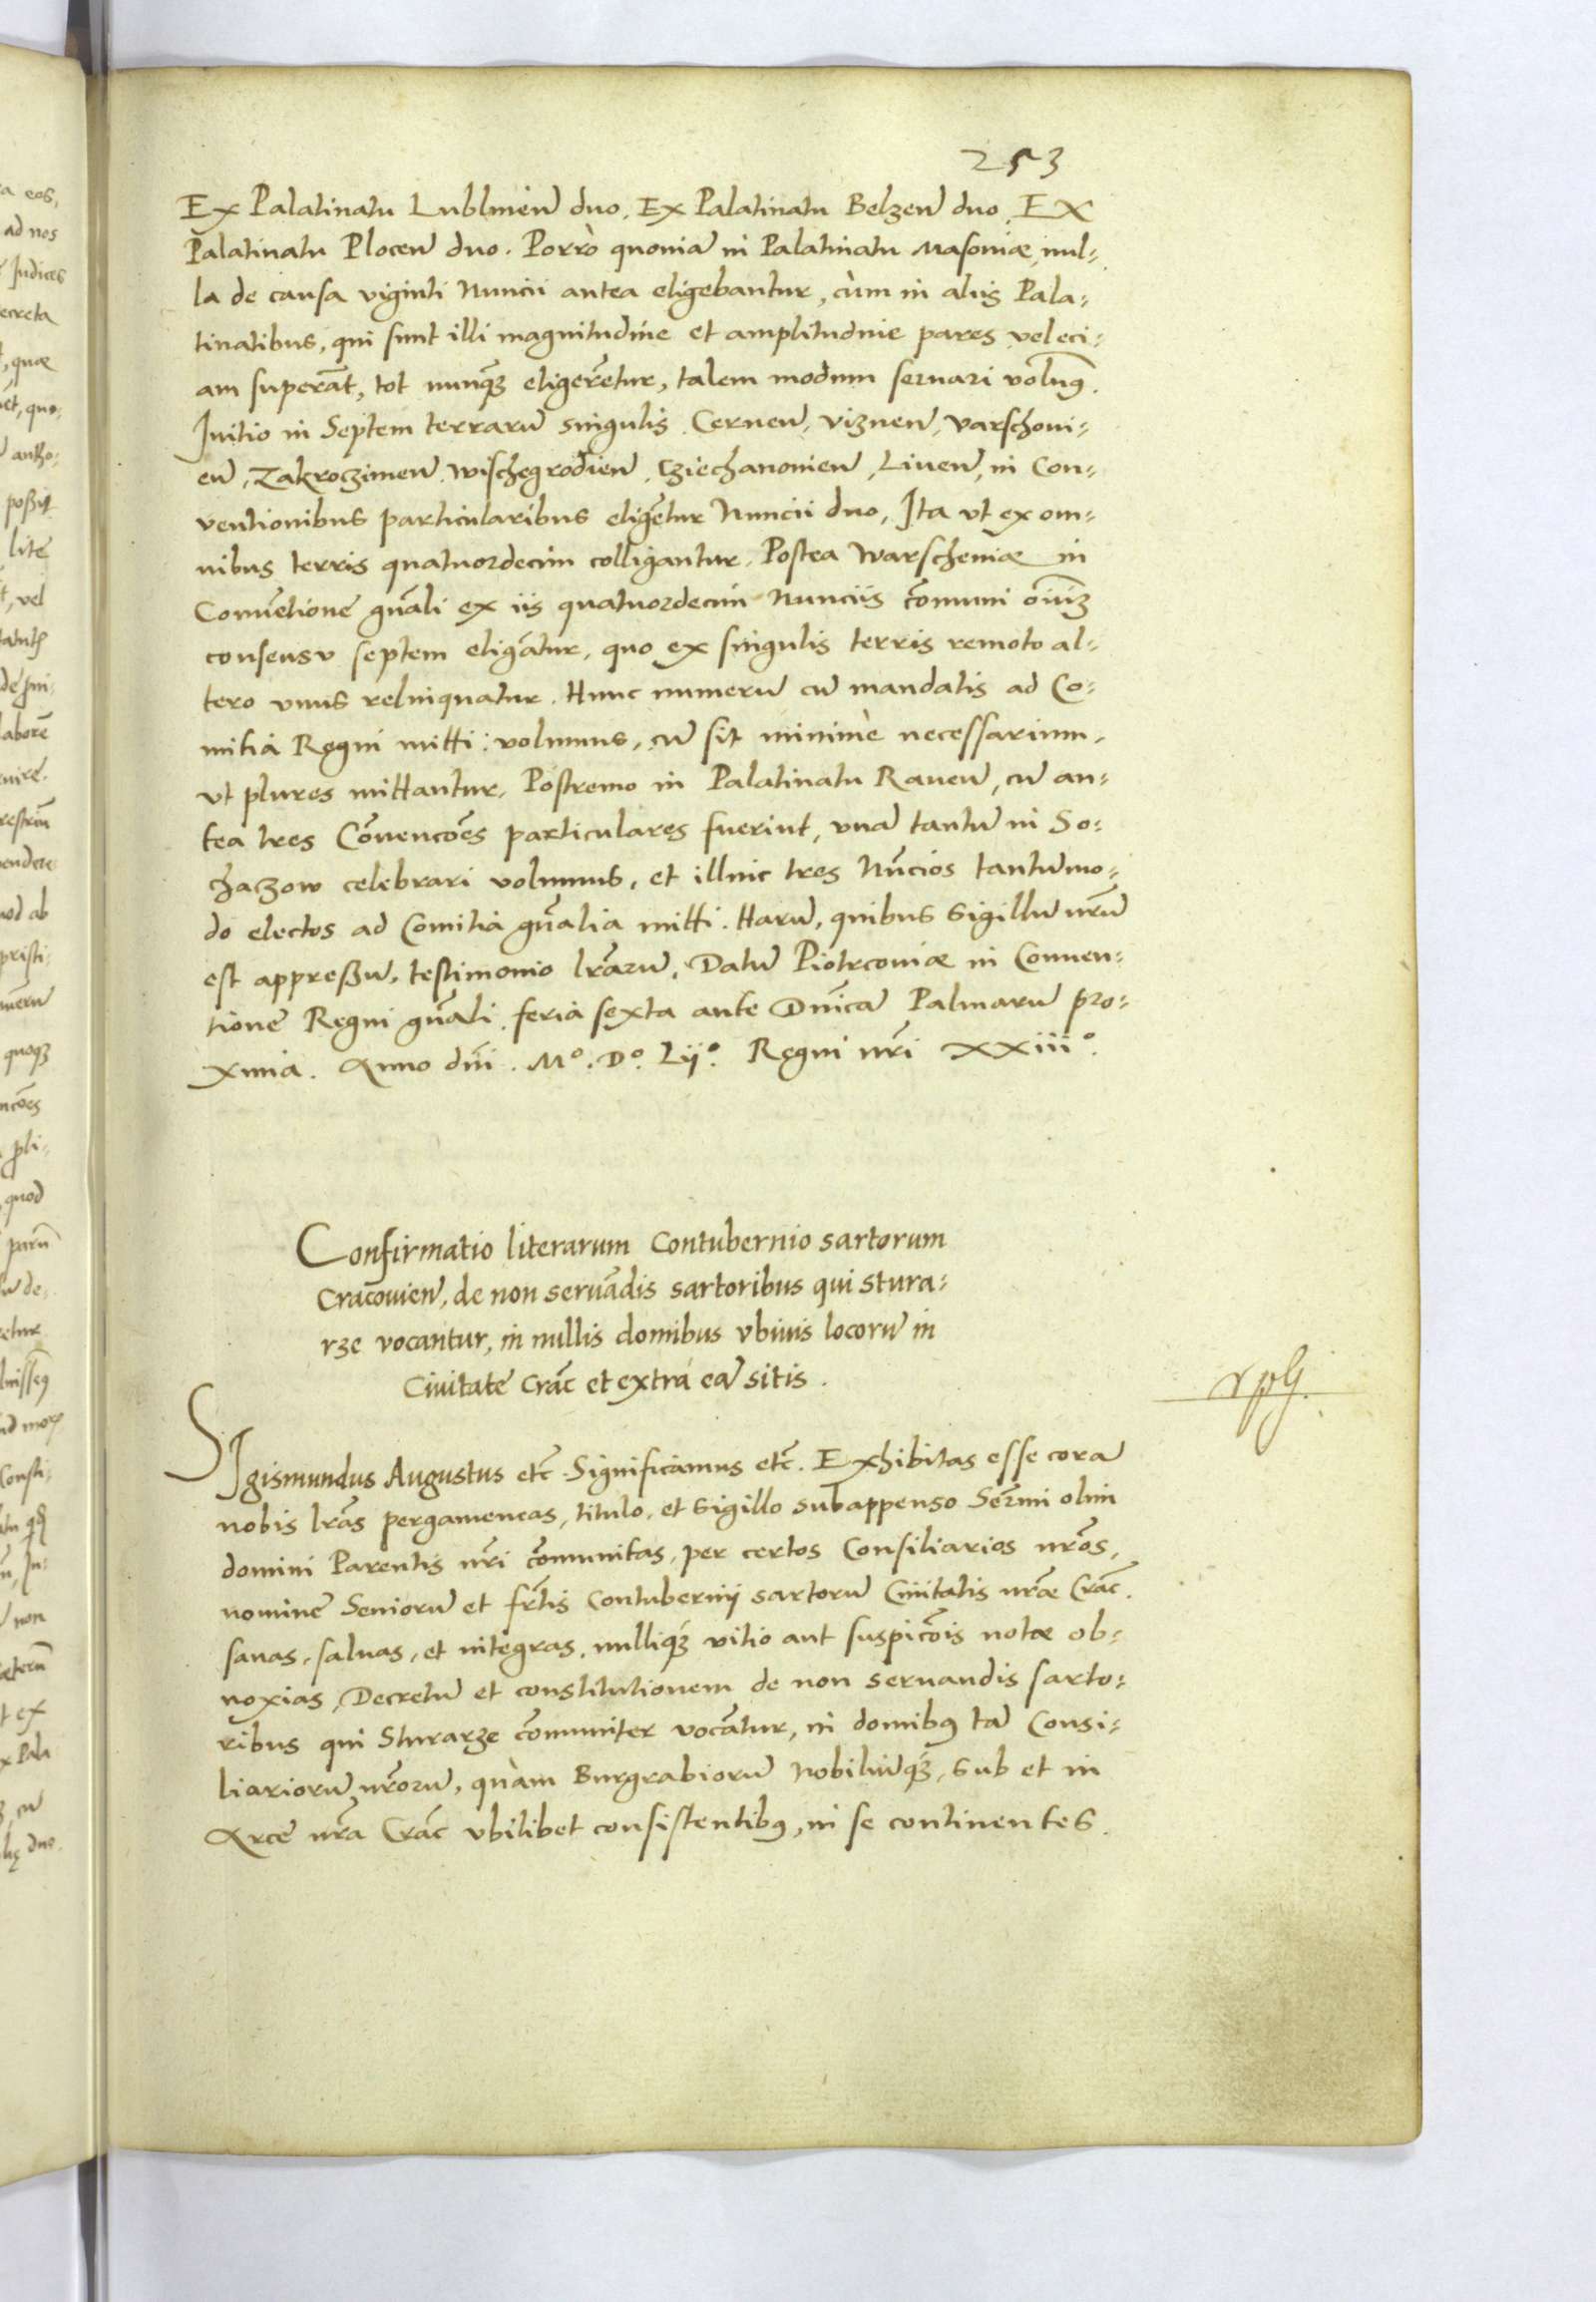 253
Ex Palatinatu Lublinen̄ duo. Ex Palatinatu Belzen̄ duo. Ex
Palatinatu Plocen̄ duo. Porrò quoniā in Palatinatu Masoviæ, nul-
la de causa viginti Nuncii antea eligebantur, cùm in aliis Pala-
tinatibus, qui sunt illi magnitudine et amplitudine pares vel eci-
am superāt, tot nunq̃ eligerētur, talem modum servari volum9.
Initio in Septem terrarū singulis Cernen̄, Viznen̄, Varschovi-
en̄, Zakroczimen̄, Wischegrodien̄, Cziechanonien̄, Liven̄, in Con-
ventionibus particularibus eligētur Nuncii duo, Ita vt ex om-
nibus terris quatuordecim colligantur. Postea Warscheviæ in
Conuētione gn̄ali ex iis quatuordecim Nunciis cōmuni oīuȝ
consensu septem eligātur, quo ex singulis terris remoto al-
tero vnus relinquatur. Hunc numerū cū mandatis ad Co-
mitia Regni mitti volumus, cū sit minimè necessarium,
vt plures mittantur. Postremo in Palatinatu Raven̄, cū an-
tea tres Cōvencōēs particulares fuerint, vnā tantū in So-
chaczow celebrari volumus, et illinc tres Nūcios tantūmo-
do electos ad Comitia gn̄alia mitti. Harū, quibus Sigillū nr̄ū
est appreßū, testimonio lr̄arū. Datū Piotrcoviæ in Conven-
tione Regni gn̄ali feria sexta ante Dn̄icā Palmarū pro-
xima. Anno dn̄i. Mº. Dº. Lijº. Regni nr̄i XXiiiº.
Confirmatio literarum Contubernio sartorum
Cracovien̄, de non servādis sartoribus qui stura-
rze vocantur, in nullis domibus vbivis locorū in
Civitate Crac̄ et extra eā sitis.
SIgismundus Augustus etc̄. Significamus etc̄. Exhibitas esse corā
nobis lr̄as pergameneas, titulo, et Sigillo subappenso Ser̄mi olim
domini Parentis nr̄i cōmunitas, per certos Consiliarios nr̄os,
nomine Seniorū et fr̄tis Contubernij sartorū Civitatis nr̄æ Crac̄.
sanas, saluas, et integras, nulliq̃ vitio aut suspicōis notæ ob-
noxias, Decretū et constitutionem de non servandis sarto-
ribus qui Sturarze cōmuniter vocātur, in domib9 tā Consi-
liariorū nr̄orū, quàm Burgrabiorū Nobiliūq̃, sub et in
Arce nr̄a Crac̄ vbilibet consistentib9, in se continentes.